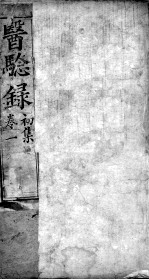 醫驗録
初集
卷一